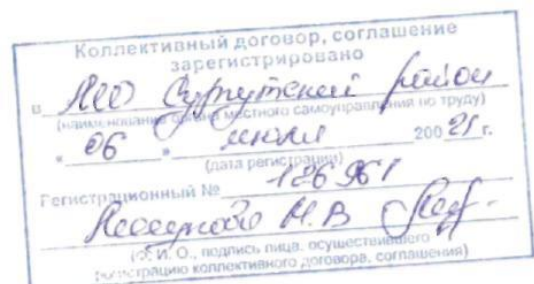 Коллективный договор, соглашение
зарегистрировано
в МО Сургутский район
(наименование органа местного самоуправления по труду)
« 06 » июля 200 21 г.
(дата регистрации)
Регистрационный № 126961
М.В
(Ф. И. О., подпись лица, осуществившего
регистрацию коллективного договора, соглашения)